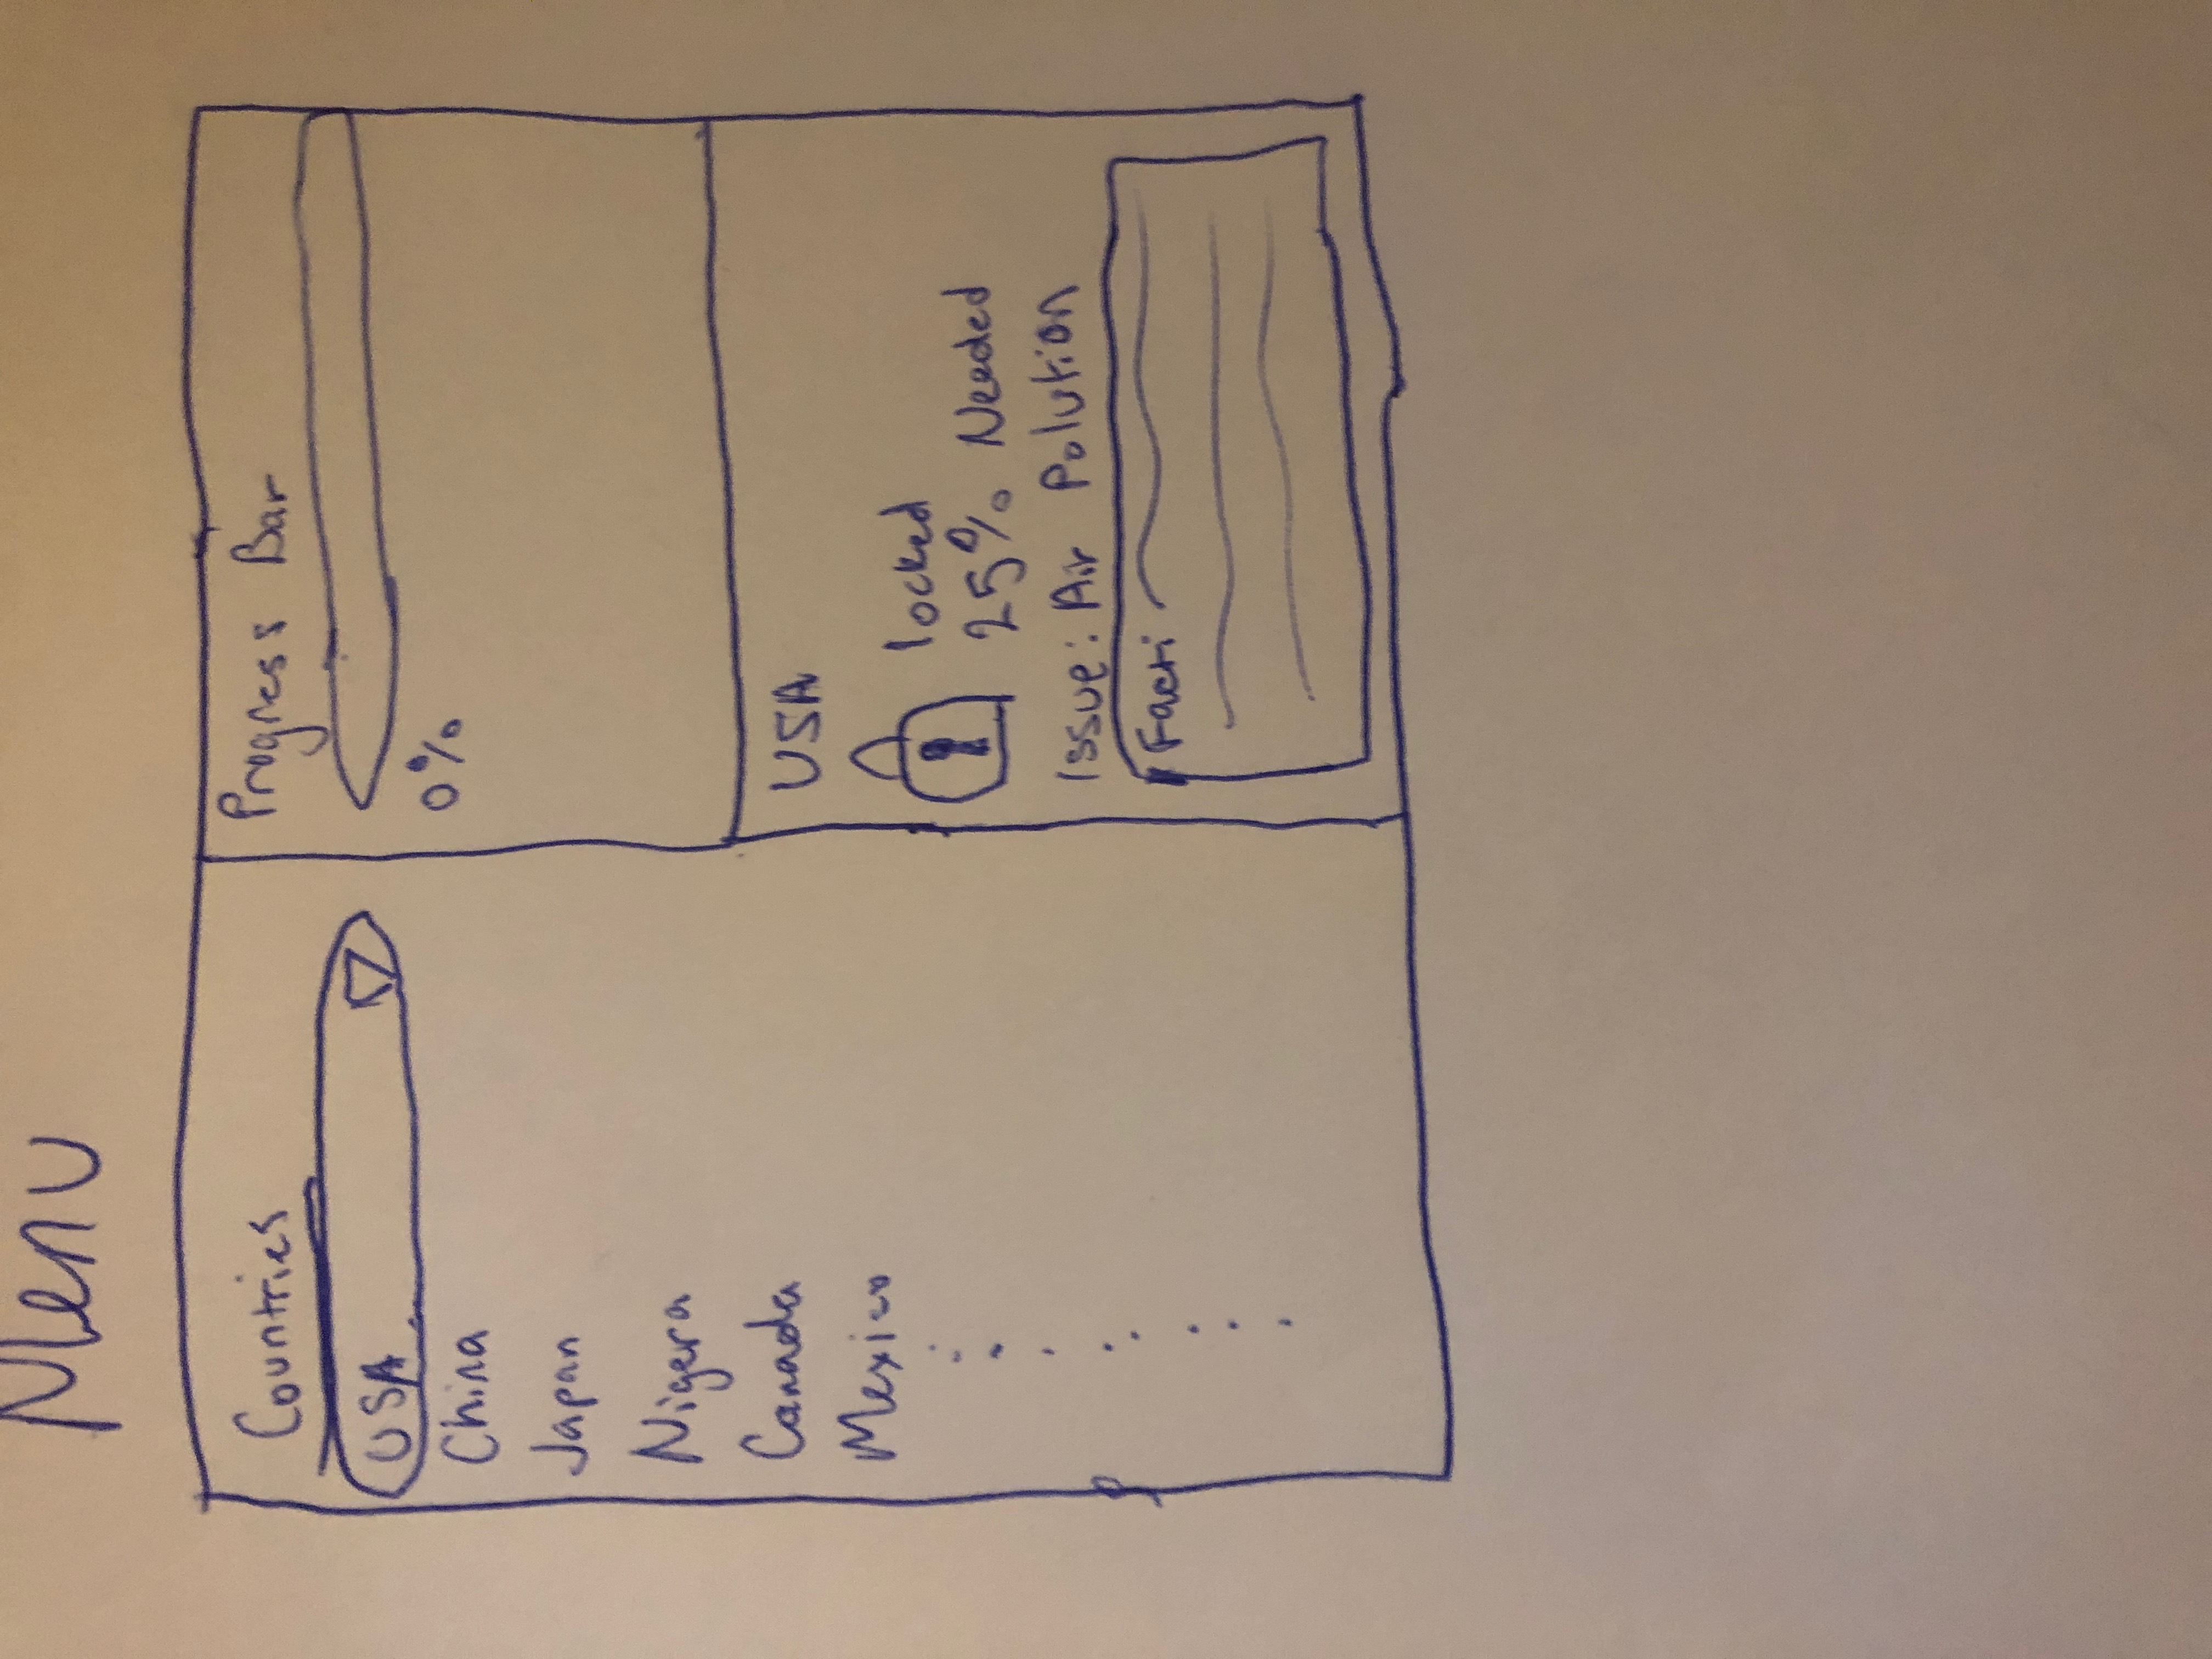 Menu
Countries
USA
China
Japan
Nigera
Canada
Mexico
Progress Bar
0%
USA
locked
25% Needed
Issue: Air Polution
Fact: